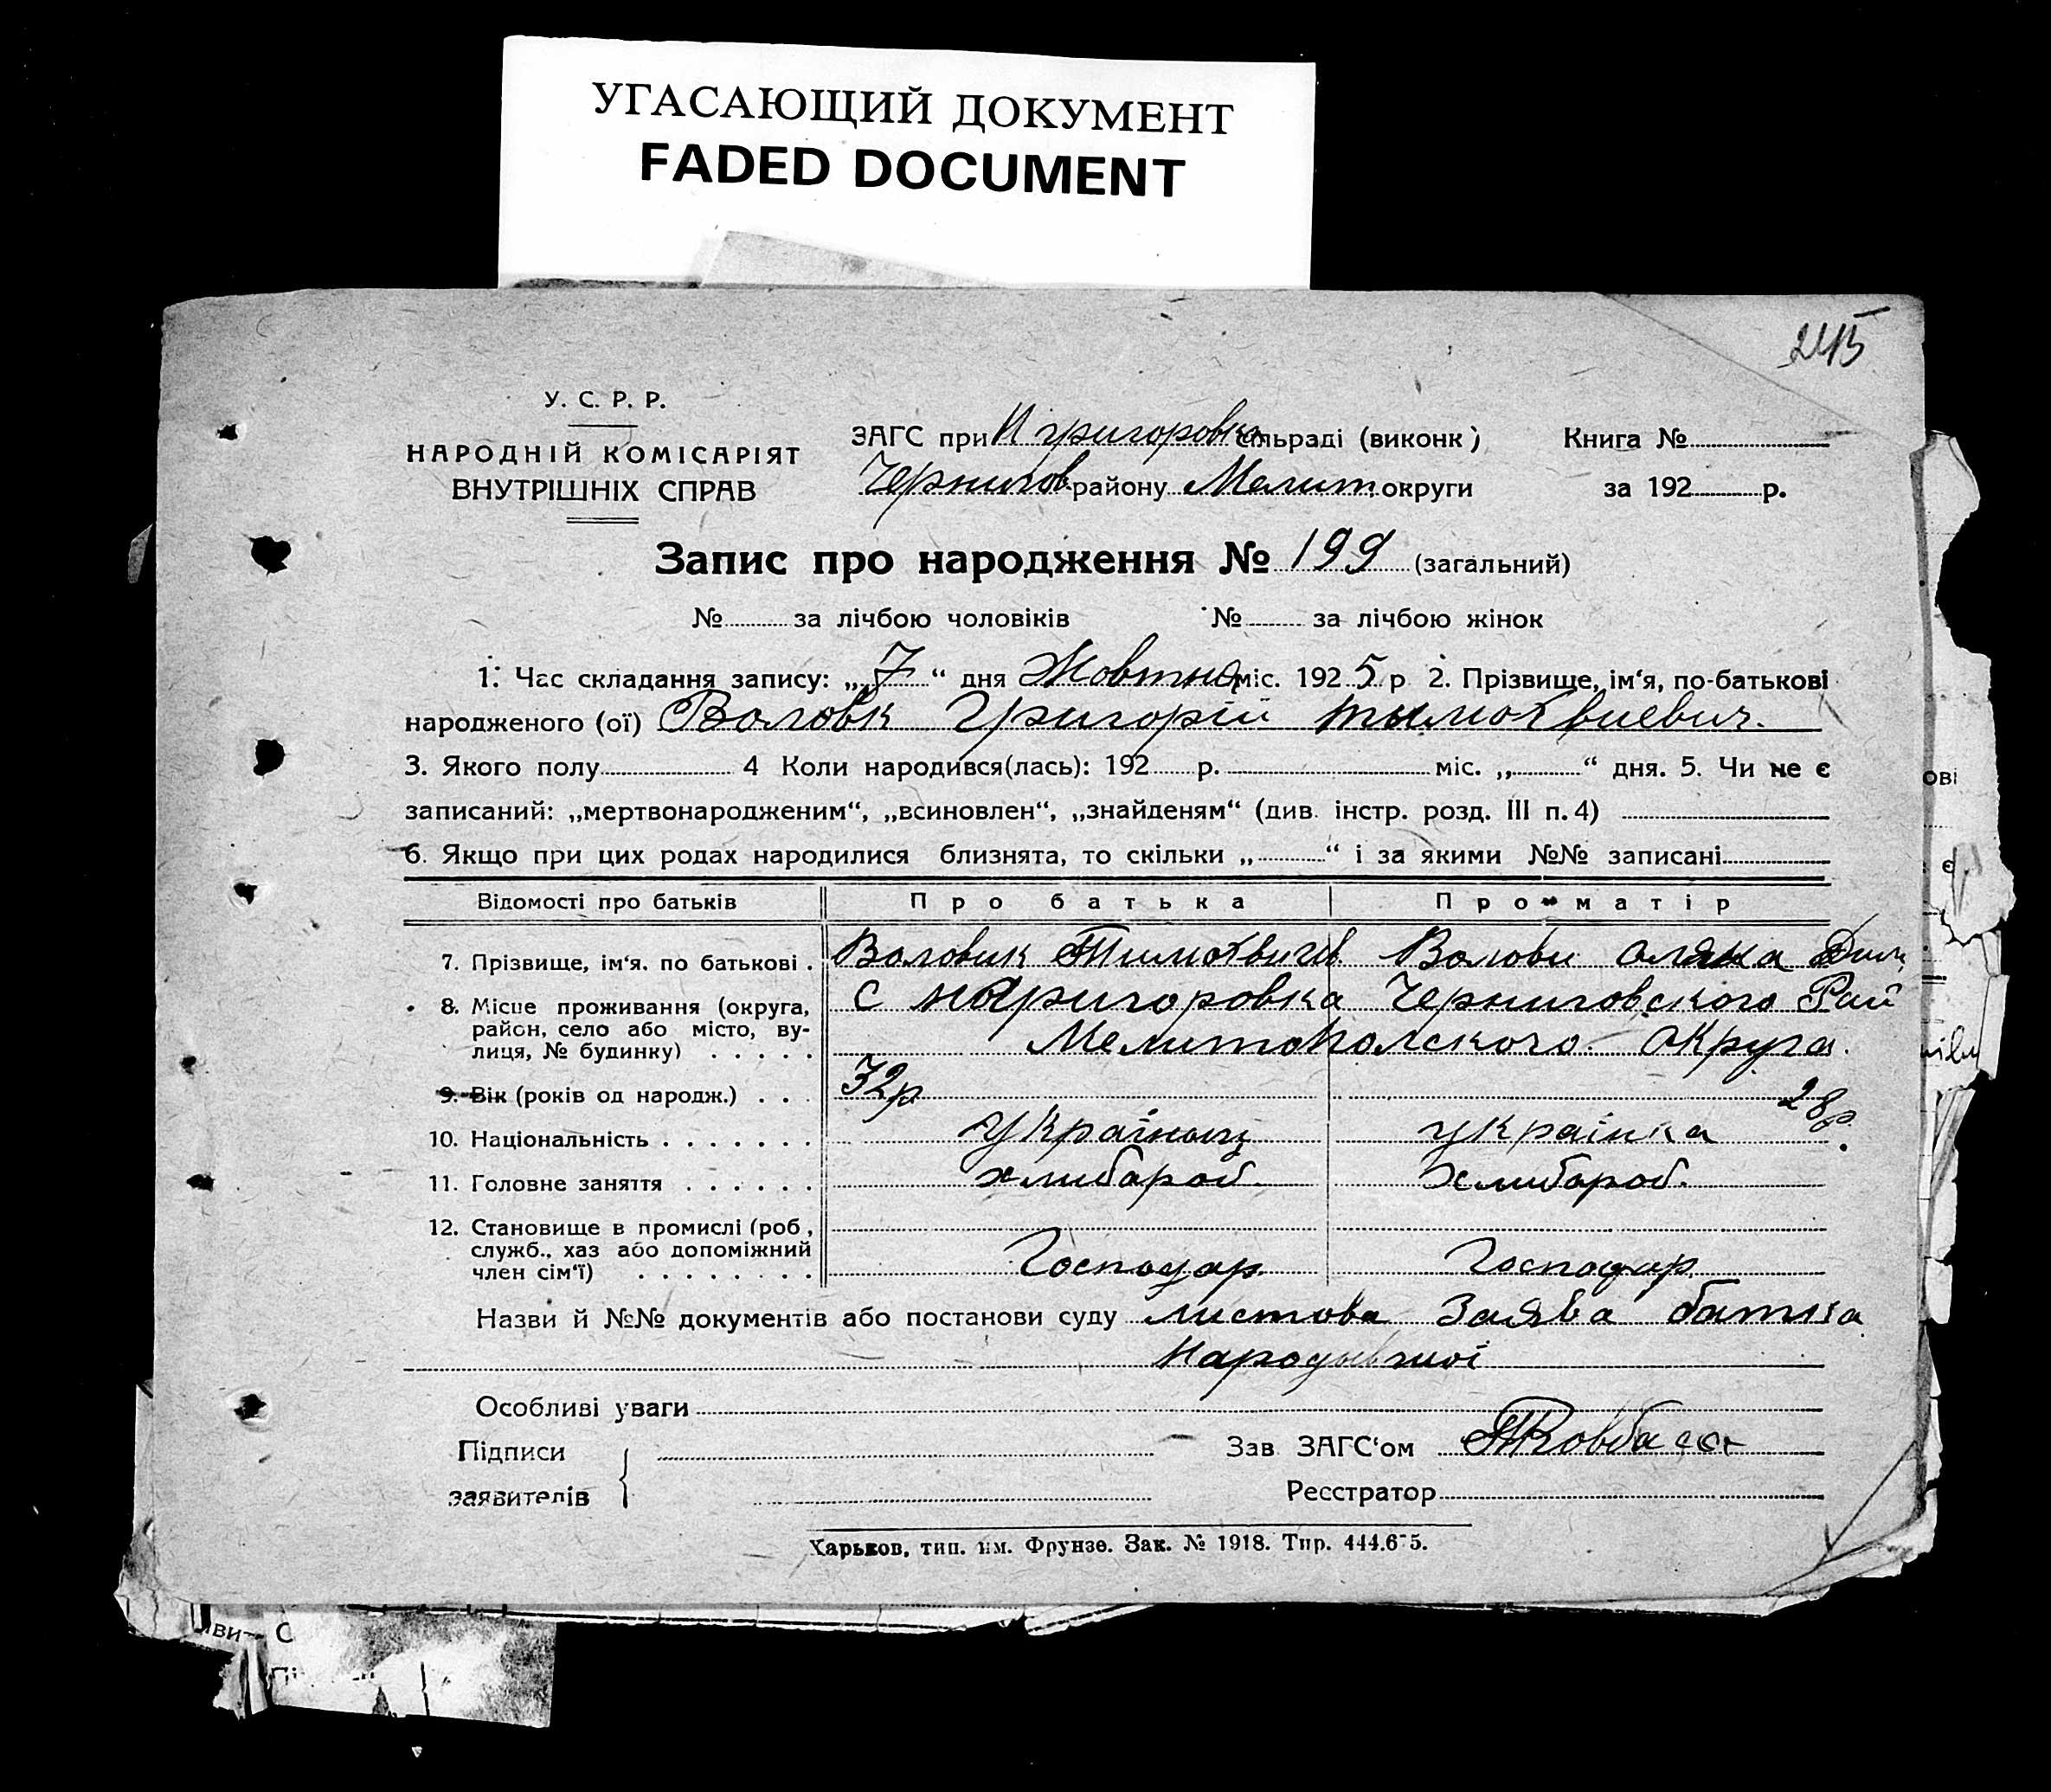 УГАСАЮЩИЙ ДОКУМЕНТ
FADED DOCUMENT
245
У. С. Р. Р.
НАРОДНІЙ КОМІСАРІЯТ
ВНУТРІШНІХ СПРАВ
ЗАГС при Н григоровка сільраді (виконк) Книга №
Чернигов району Мелит округи за 192 р.
Запис про народження № 199 (загальний)
№ за лічбою чоловіків № за лічбою жінок
1. Час складання запису: „7“ дня Жовтня міс. 1925 р 2. Прізвище, ім‘я, по-батькові
народженого (ої) Воловк Григорій
3. Якого полу 4 Коли народився(лась): 192 р. міс. „ “ дня. 5. Чи не є
записаний: „мертвонародженим“, „всиновлен“, „знайденям“ (див. інстр. розд. III п. 4)
6. Якщо при цих родах народилися близнята, то скільки „ “ і за якими №№ записані
Відомості про батьків Про батька Про матір
7. Прізвище, ім‘я. по батькові . Воловик Волови
8. Місце проживання (округа,
район, село або місто, ву-
лиця, № будинку) . . . . .
с нгригоровка Черниговского Рай
Мелитополского Округа.
9. Вік (років од народж.) . . . 32р 28р.
10. Національність . . . . . . . Україныц українка
11. Головне заняття . . . . . . хлибароб. Хлибароб.
12. Становище в промислі (роб,
служб., хаз або допоміжний
член сім‘ї) . . . . . . . .
Господар Господар
Назви й №№ документів або постанови суду листова Заява батка
Особливі уваги
Підписи
заявителів
Зав ЗАГС‘ом
Ресстратор
Харьков, тип. им. Фрунзе. Зак. № 1918. Тир. 444.675.